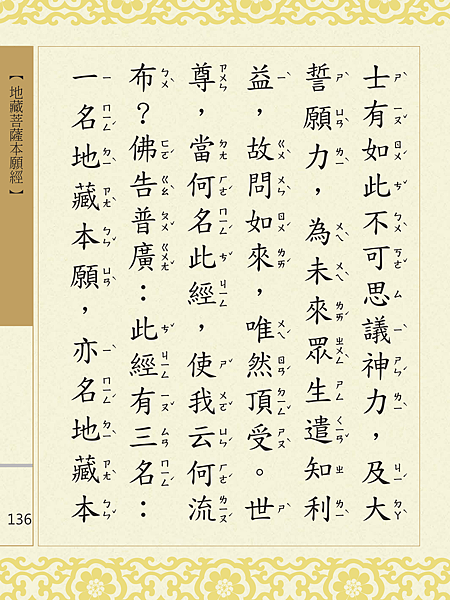 士有如此不可思議神力，及大
誓願力，為未來眾生遣知利
益，故問如來，唯然頂受。世
尊，當何名此經，使我云何流
布？佛告普廣：此經有三名：
一名地藏本願，亦名地藏本
【地藏菩薩本願經】
136